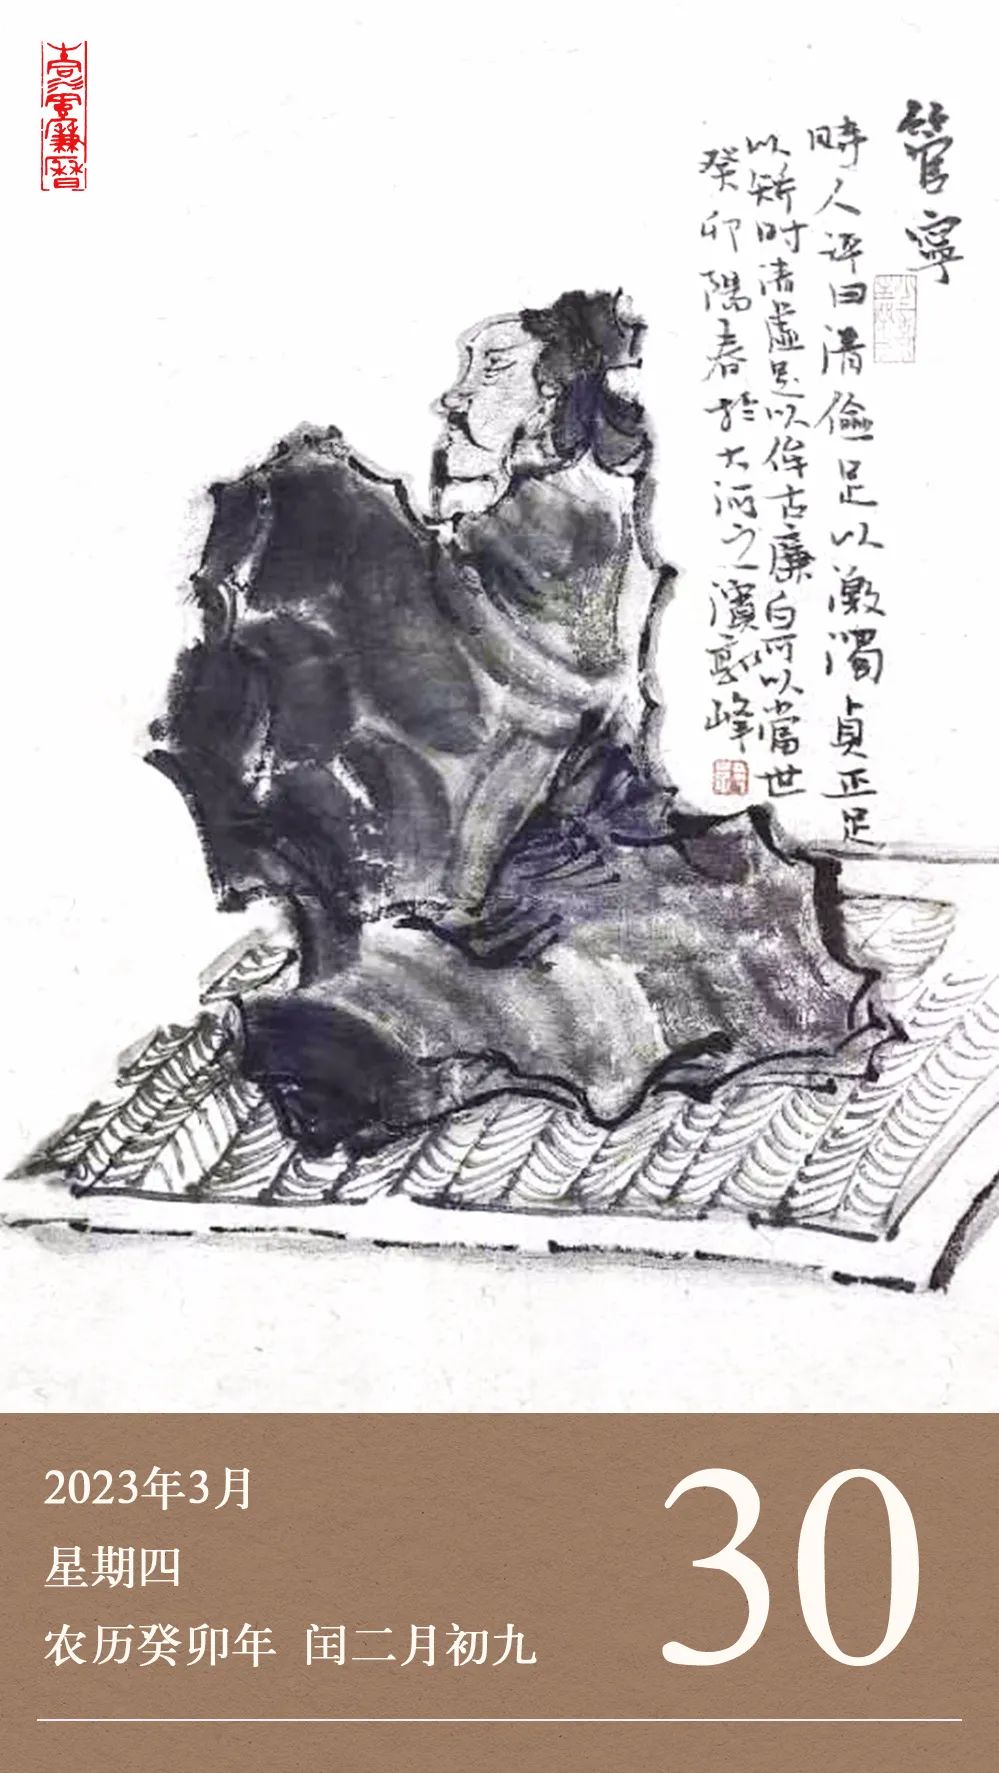 管寧
時人评曰清儉足以激濁貞正足
以矫时清虛足以侔古廉白可以當世
癸卯陽春於大河之濱郭峰
2023年3月
星期四
农历癸卯年 闰二月初九
30